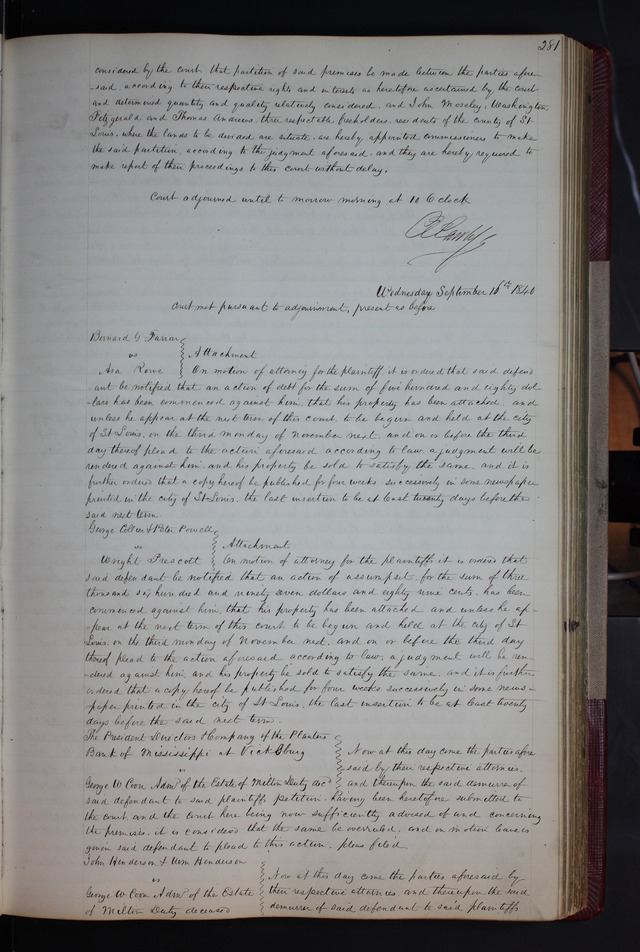 281
considered by the court that partition of said premises be made between the parties afore-
-said according to their respective rights and interests as heretofore ascertained by the court
and determined quantity and quality relatively considered, and John Moseley, Washington
Fitzgerald and Thomas Andrews, three respectable freeholders, residents of the county of St
Louis, where the lands to be divided are situate, are hereby appointed commissioners to make
the said partition according to the judgment aforesaid, and they are hereby required to
make report of their proceedings to this court without delay.
Court adjourned until to morrow morning at 10 O clock
Wednesday September 16th 1840
Court met pursuant to adjournment, present as before
Bernard G Farrar
vs Attachment
Asa Rowe On motion of attorney for the plaintiff it is ordered that said defend
ant be notified that an action of debt for the sum of five hundred and eighty dol
-lars has been commenced against him, that his property has been attached, and
unless he appear at the next term of this court to be begun and held at the city
of St Louis, on the third monday of November next, and on or before the third
day thereof plead to the action aforesaid according to law, a judgment will be
rendered against him, and his property be sold to satisfy the same, and it is
further ordered that a copy hereof be published for four weeks successively in some newspaper
printed in the city of St Louis, the last insertion to be at least twenty days before the
said next term.
George Collier & Peter Powell
vs Attachment
Wright Prescott On motion of attorney for the plaintiffs it is ordered that
said defendant be notified that an action of assumpsit for the sum of three
thousand six hundred and ninety seven dollars and eighty nine cents, has been
commenced against him, that his property has been attached and unless he ap-
-pear at the next term of this court to be begun and held at the city of St
Louis, on the third monday of November next, and on or before the third day
thereof plead to the action aforesaid according to law, a judgment will be ren
-dered against him, and his property be sold to satisfy the same, and it is further
ordered that a copy hereof be published for four weeks successively in some news-
-paper printed in the city of St Louis, the last insertion to be at least twenty
days before the said next term.
The President Directors & Company of the Planters
Bank of Mississippi at Vicksburg Now at this day come the parties afore
vs said by their respective attornies,
George W Coon Admr of the Estate of Milton Duty decd and thereupon the said demurrer of
said defendant to said plaintiffs petition, having been heretofore submitted to
the court, and the court here being now sufficiently advised of and concerning
the premises, it is considered that the same be overruled, and on motion leave is
given said defendant to plead to this action, pleas filed.
John Henderson & Wm Henderson
vs Now at this day come the parties aforesaid by
George W Coon Admr of the Estate their respective attornies, and thereupon the said
of Milton Duty deceased demurrer of said defendant to said plaintiffs